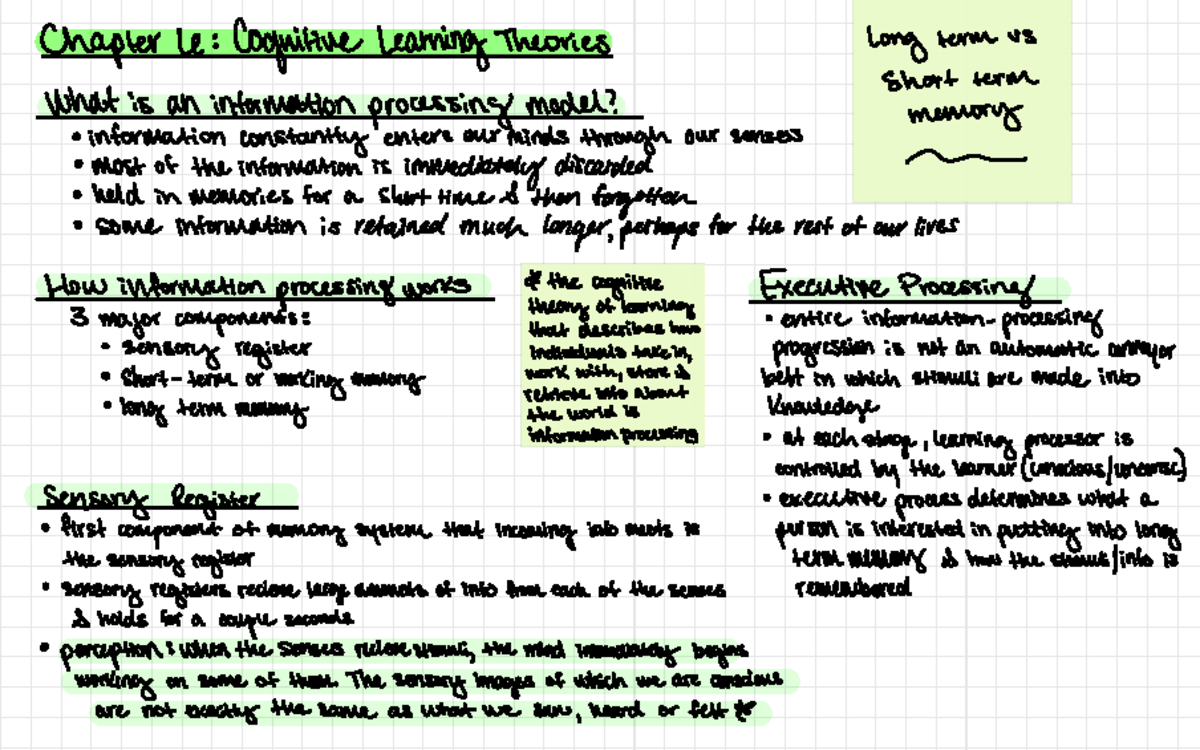 Chapter 6: Cognitive Learning Theories
Long term vs
Short term
memory
What is an information processing model?
• information constantly enters our minds through our senses
• most of the information is immediately discarded
• held in memories for a short time & then forgotten
• some information is retained much longer, perhaps for the rest of our lives
How information processing works
3 major components:
• sensory register
• Short-term or working memory
• long term memory
* the cognitive
theory of learning
that describes how
individuals take in,
work with, store &
retrieve info about
the world is
information processing
Executive Processing
• entire information-processing
progression is not an automatic conveyor
belt in which stimuli are made into
knowledge
• at each stage, learning processor is
controlled by the learner (conscious/unconsc)
• executive process determines what a
person is interested in putting into long
term memory & how the stimuli/info is
remembered
Sensory Register
• first component of memory system that incoming info meets is
the sensory register
• sensory registers recieve large amounts of info from each of the senses
& holds for a couple seconds
• perception: when the senses recieve stimuli, the mind immediately begins
working on some of them. The sensory images of which we are conscious
are not exactly the same as what we saw, heard or felt *